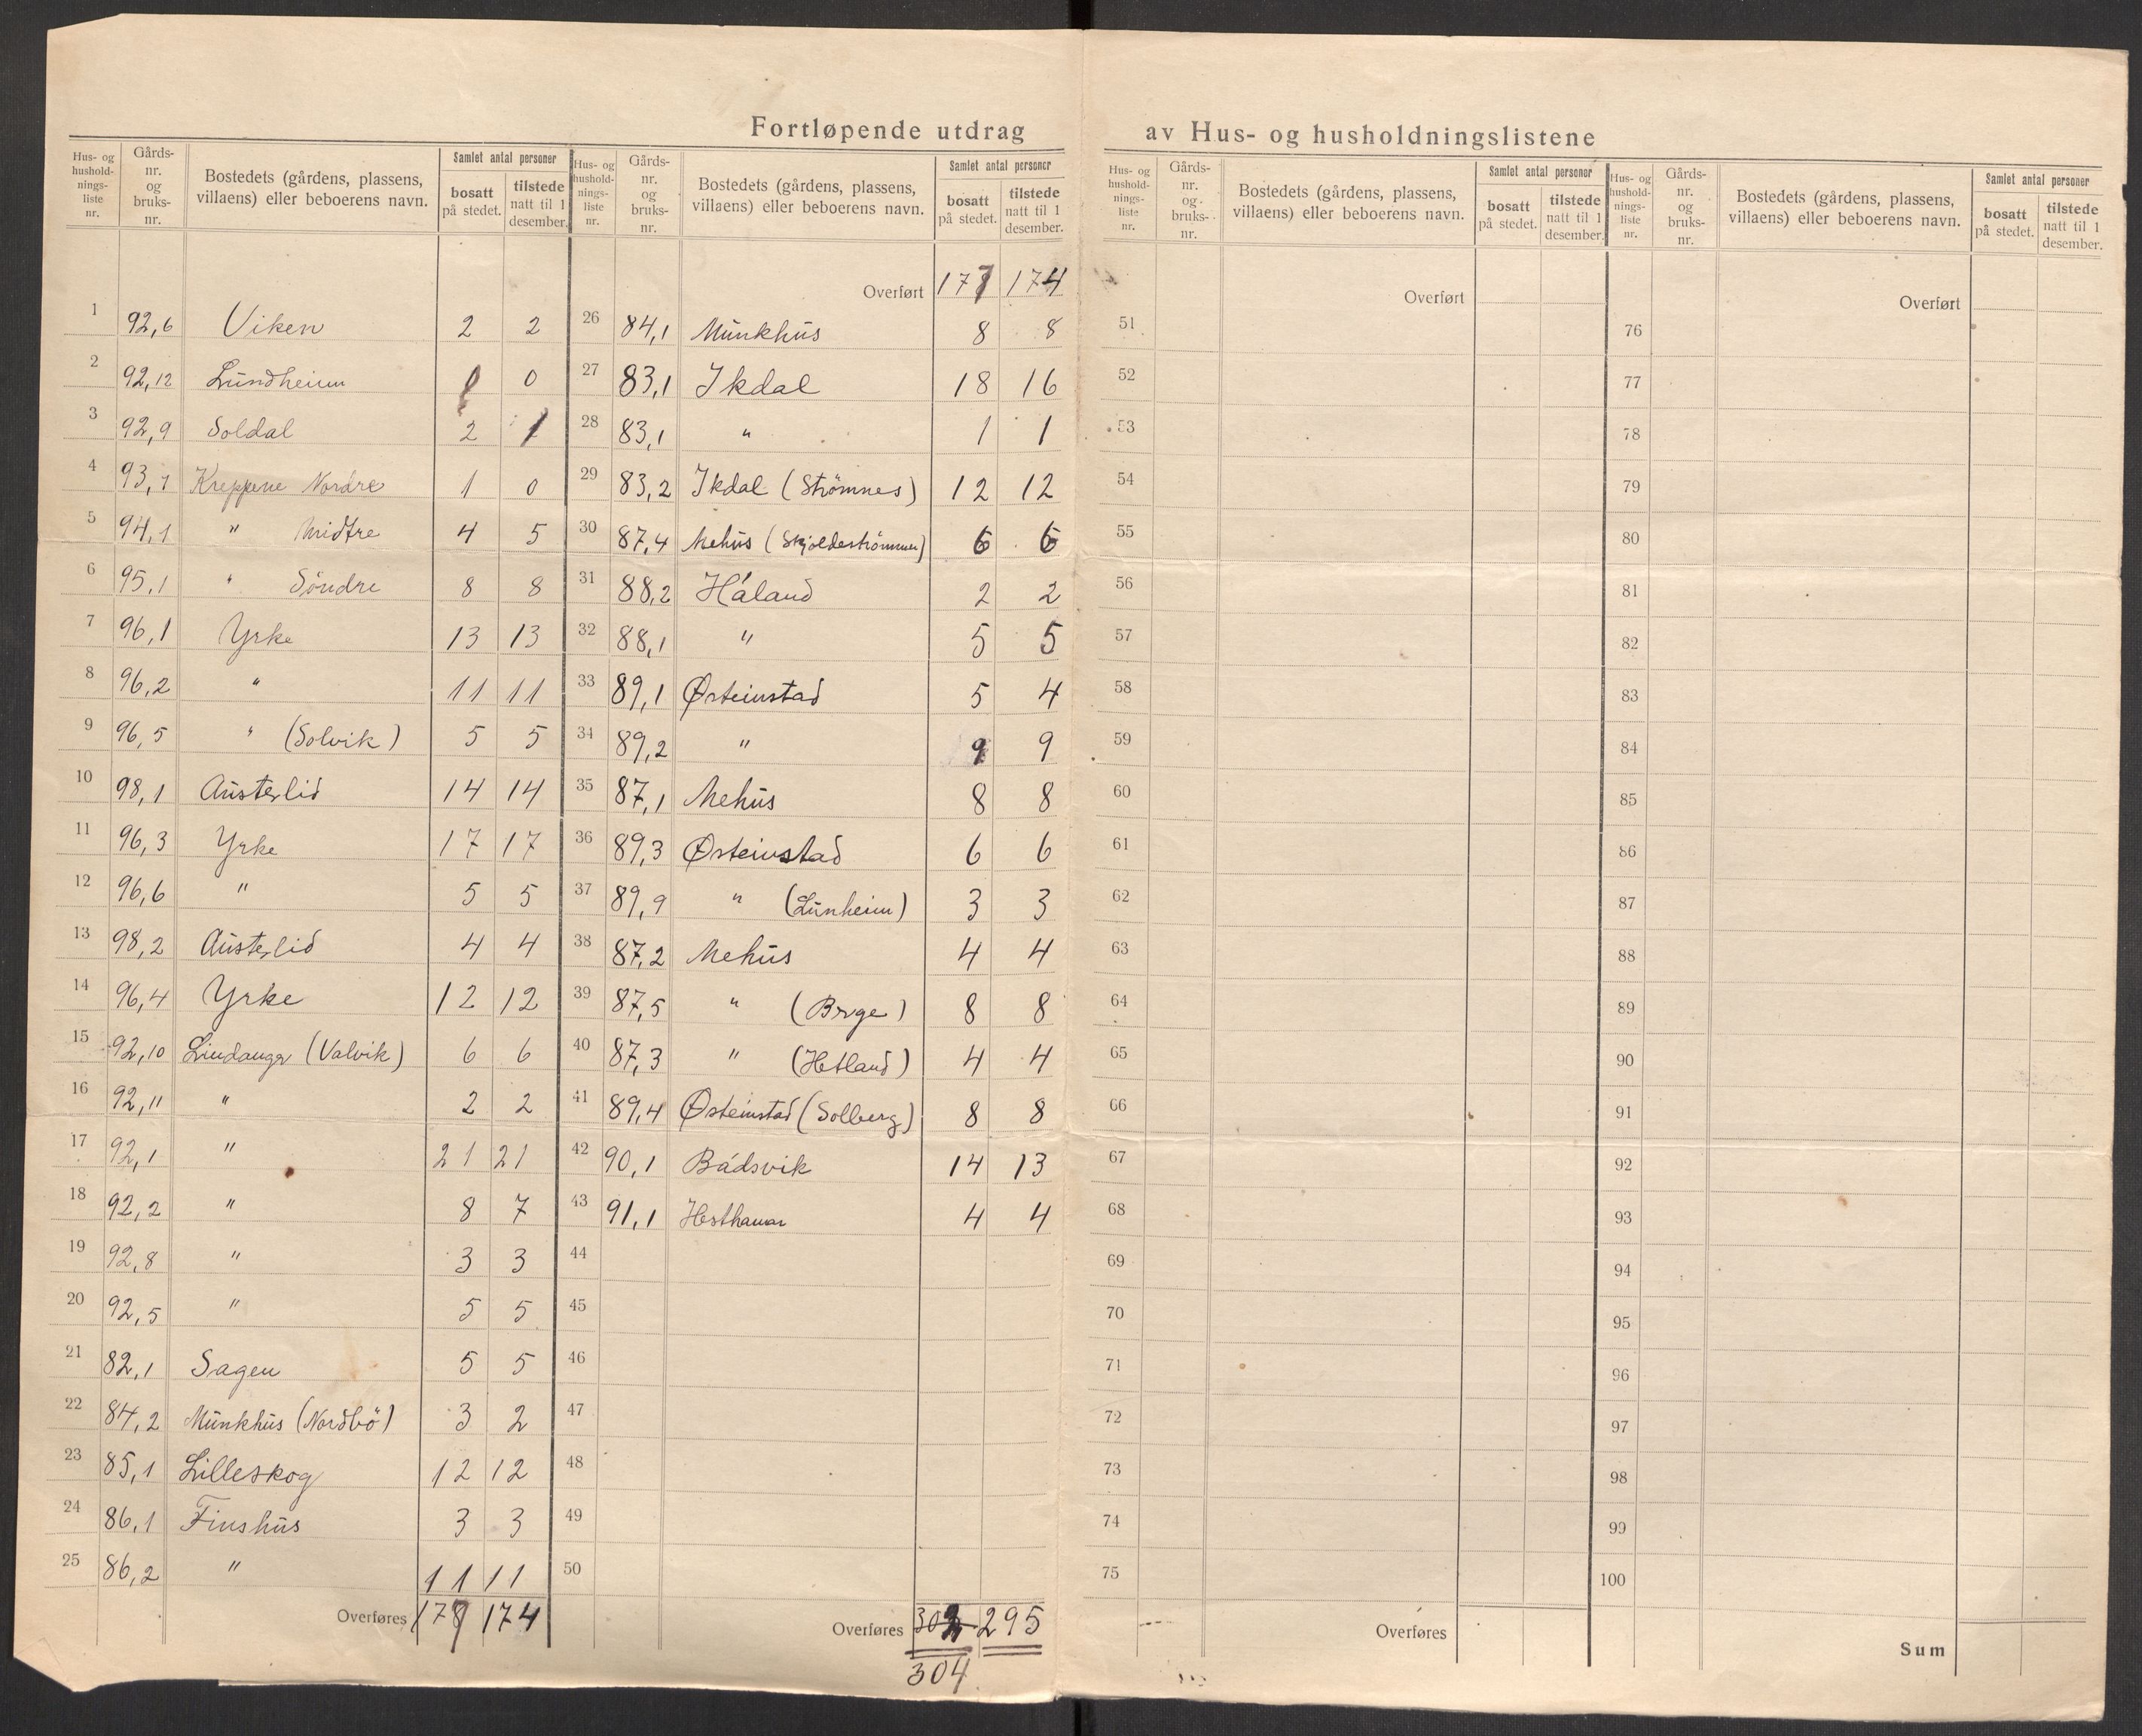 Fortløpende utdrag av Hus- og husholdningslistene
Hus- og hushold-nings-liste nr. Gårds-nr. og bruks-nr. Bostedets (gårdens, plassens, villaens) eller beboerens navn. Samlet antal personer bosatt på stedet. tilstede natt til 1 desember.
1 92,6 Viken 2 2
2 92,12 Lundheim 0 0
3 92,9 Soldal 2 1
4 93,1 Kreppene Nordre 1 0
5 94,1 " Midtre 4 5
6 95,1 " Söndre 8 8
7 96,1 Yrke 13 13
8 96,2 " 11 11
9 96,5 " (Solvik) 5 5
10 98,1 Austerlid 14 14
11 96,3 Yrke 17 17
12 96,6 " 5 5
13 98,2 Austerlid 4 4
14 96,4 Yrke 12 12
15 92,10 Lindanger (Valvik) 6 6
16 92,11 " 2 2
17 92,1 " 21 21
18 92,2 " 8 7
19 92,8 " 3 3
20 92,5 " 5 5
21 82,1 Sagen 5 5
22 84,2 Munkhus (Nordbö) 3 2
23 85,1 Lilleskog 12 12
24 86,1 Finshus 3 3
25 86,2 " 11 11
Overføres 174
Hus- og hushold-nings-liste nr. Gårds-nr. og bruks-nr. Bostedets (gårdens, plassens, villaens) eller beboerens navn. Samlet antal personer bosatt på stedet. tilstede natt til 1 desember.
Overført 177 174
26 84,1 Munkhus 8 8
27 83,1 Ikdal 18 16
28 83,1 " 1 1
29 83,2 Ikdal (Strömnes) 12 12
30 87,4 Mehus (Skjoldeströmmen) 6 6
31 88,2 Håland 2 2
32 88,1 " 5 5
33 89,1 Østeinstad 5 4
34 89,2 " 9 9
35 87,1 Mehus 8 8
36 89,3 Østeinstad 6 6
37 89,9 " (Lunheim) 3 3
38 87,2 Mehus 4 4
39 87,5 " 8 8
40 87,3 " (Hetland) 4 4
41 89,4 Østeinstad (Solberg) 8 8
42 90,1 Bådsvik 14 13
43 91,1 Hesthamar 4 4
44
45
46
47
48
49
50
Overføres 302 295
304
Hus- og hushold-nings-liste nr. Gårds-nr. og bruks-nr. Bostedets (gårdens, plassens, villaens) eller beboerens navn. Samlet antal personer bosatt på stedet. tilstede natt til 1 desember.
Overført
51
52
53
54
55
56
57
58
59
60
61
62
63
64
65
66
67
68
69
70
71
72
73
74
75
Overføres
Hus- og hushold-nings-liste nr. Gårds-nr. og bruks-nr. Bostedets (gårdens, plassens, villaens) eller beboerens navn. Samlet antal personer bosatt på stedet. tilstede natt til 1 desember.
Overført
76
77
78
79
80
81
82
83
84
85
86
87
88
89
90
91
92
93
94
95
96
97
98
99
100
Sum